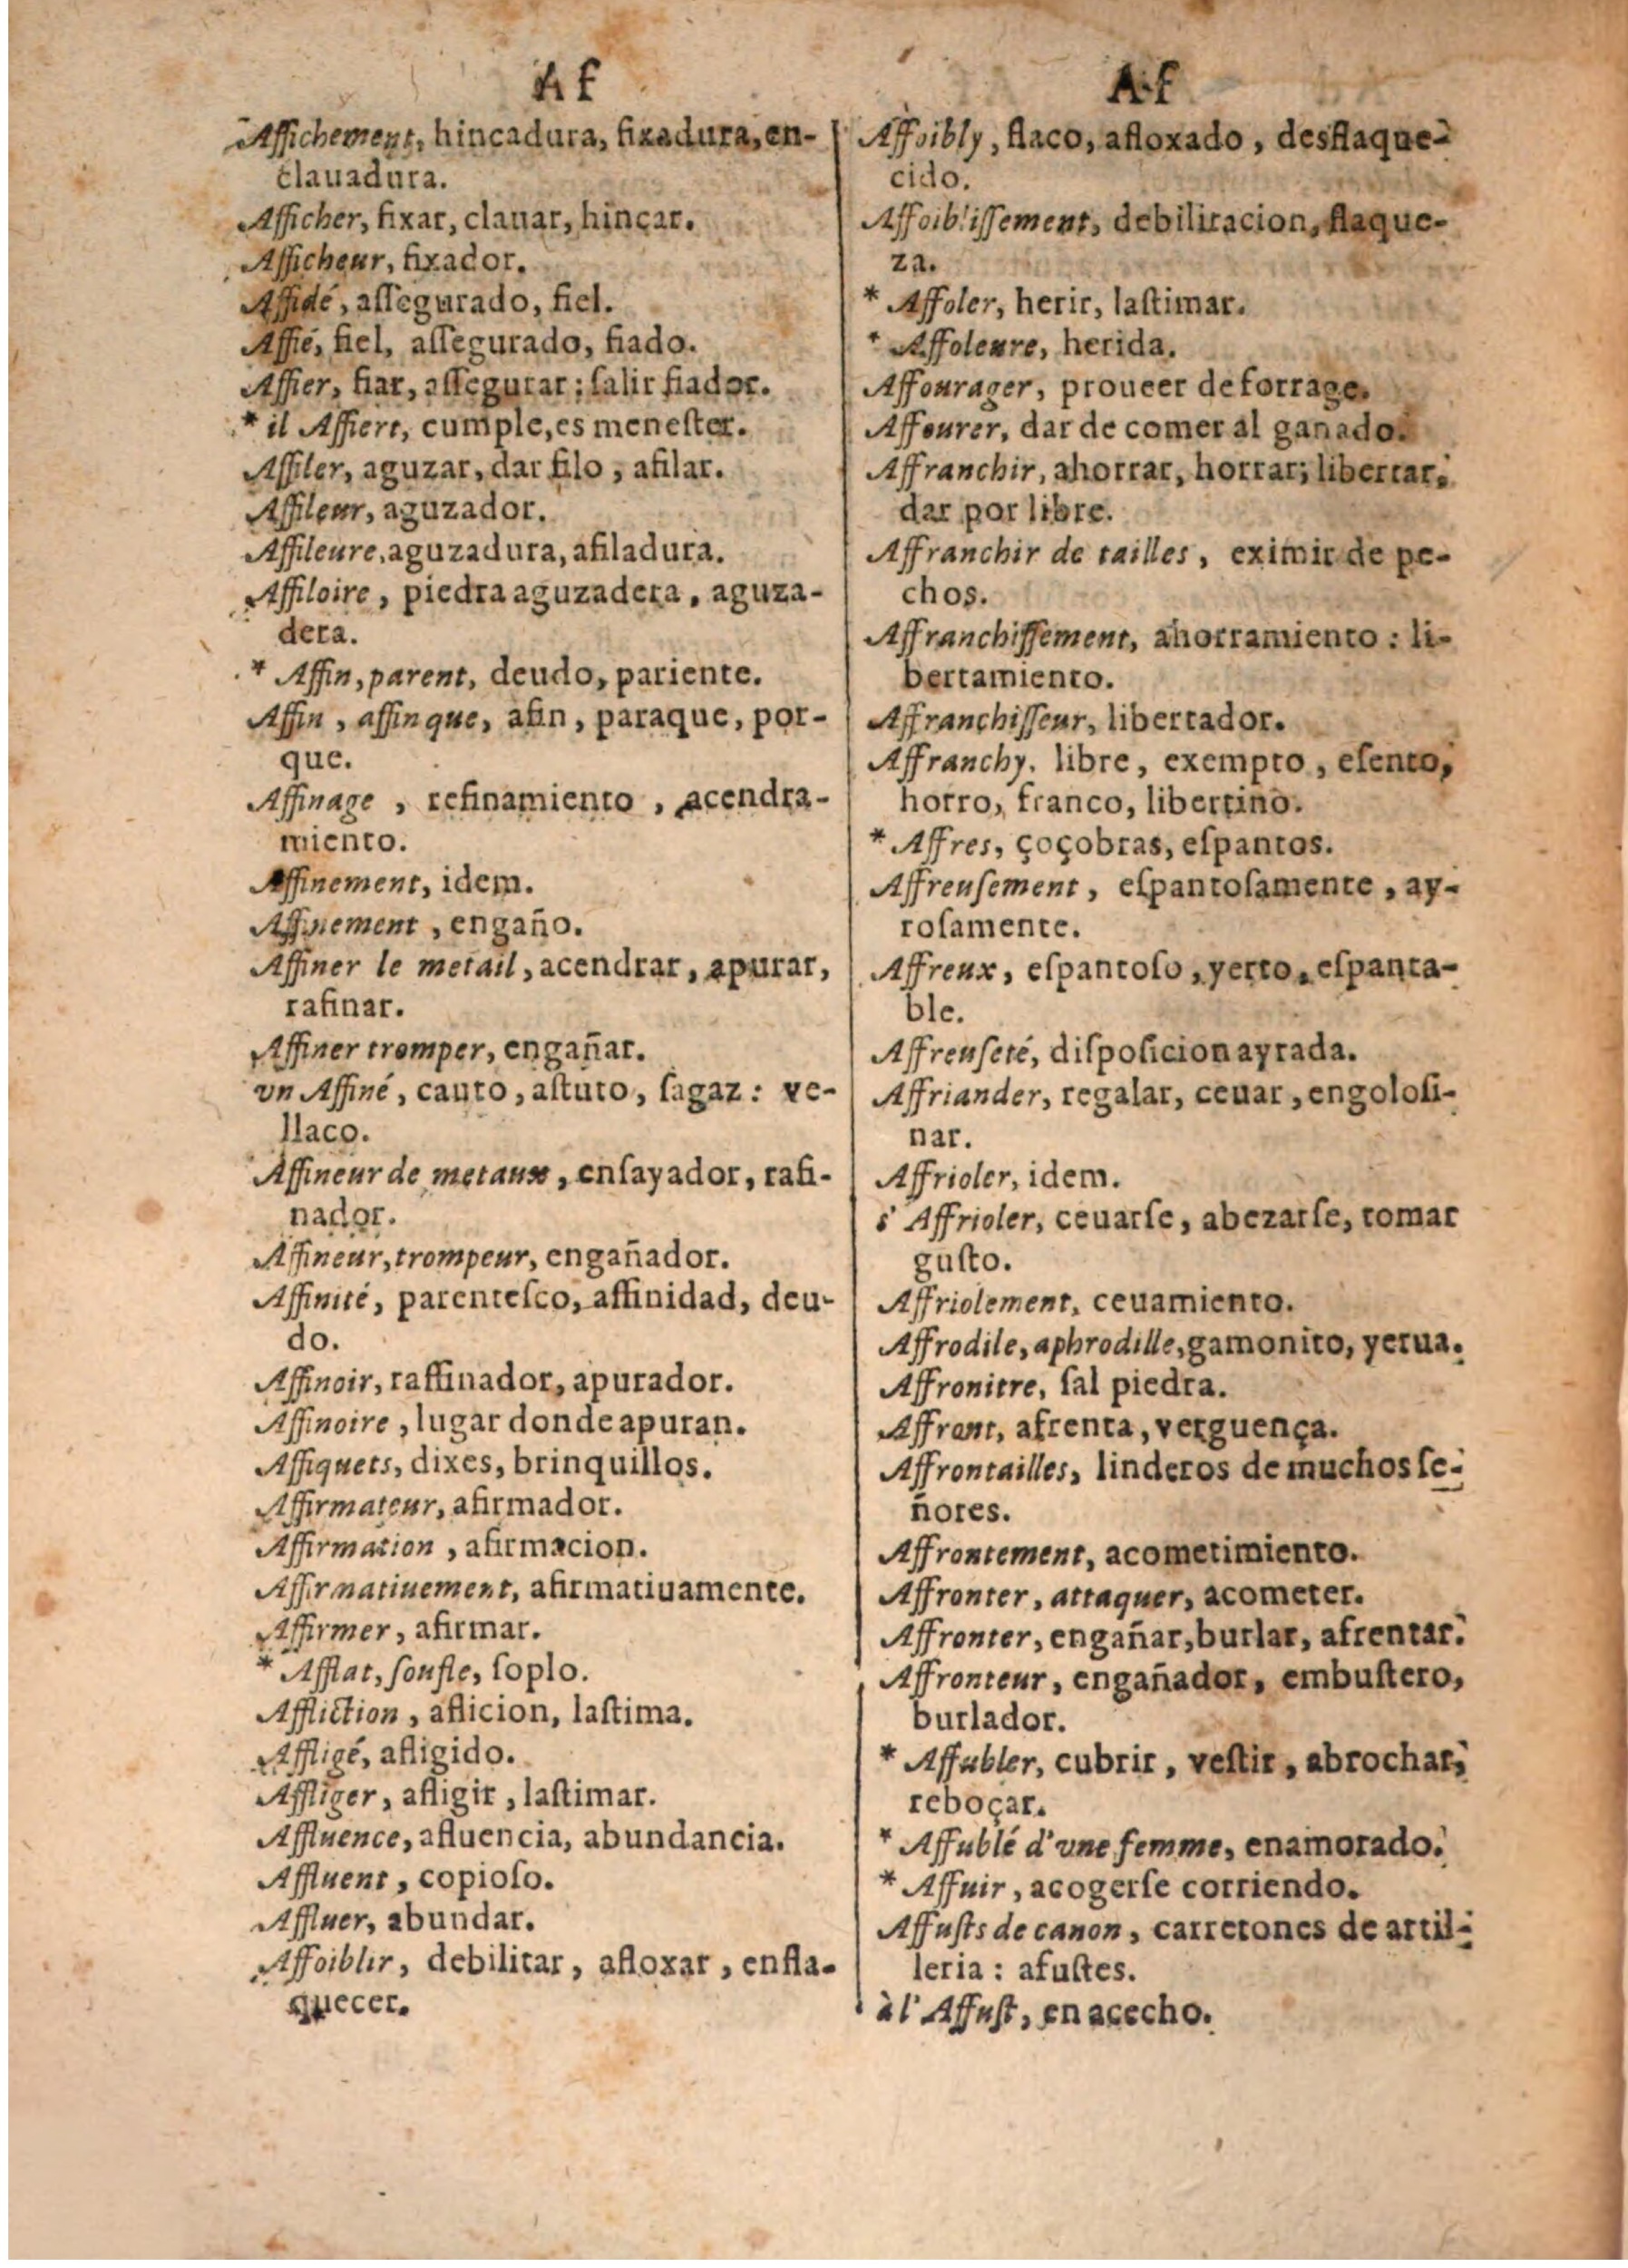 Af
Affichement, hincadura, fixadura, en-
clauadura.
Afficher, fixar, clauar, hincar.
Afficheur, fixador.
Affidé, aſſegurado, fiel.
Affié, fiel, aſſegurado, fiado.
Affier, fiar, aſſegurar; ſalir fiador.
* il Affiert, cumple, es meneſter.
Affiler, aguzar, dar filo, afilar.
Affileur, aguzador.
Affileure, aguzadura, afiladura.
Affiloire, piedra aguzadera, aguza-
dera.
* Affin, parent, deudo, pariente.
Affin, affin que, afin, paraque, por-
que.
Affinage, refinamiento, acendra-
miento.
Affinement, idem.
Affinement, engaño.
Affiner le metail, acendrar, apurar,
rafinar.
Affiner tromper, engañar.
vn Affiné, cauto, aſtuto, ſagaz: ve-
llaco.
Affineur de metaux, enſayador, rafi-
nador.
Affineur, trompeur, engañador.
Affinité, parenteſco, affinidad, deu-
do.
Affinoir, raffinador, apurador.
Affinoire, lugar donde apuran.
Affiquets, dixes, brinquillos.
Affirmateur, afirmador.
Affirmation, afirmacion.
Affirmatiuement, afirmatiuamente.
Affirmer, afirmar.
* Afflat, soufle, ſoplo.
Affliction, aflicion, laſtima.
Affligé, afligido.
Affliger, afligir, laſtimar.
Affluence, afluencia, abundancia.
Affluent, copioſo.
Affluer, abundar.
Affoiblir, debilitar, afloxar, enfla-
quecer.
Af
Affoibly, flaco, afloxado, desflaque-
cido.
Affoibliſſement, debilitacion, flaque-
za.
* Affoler, herir, laſtimar.
* Affoleure, herida.
Affourager, proueer de forrage.
Affourer, dar de comer al ganado.
Affranchir, ahorrar, horrar; libertar,
dar por libre.
Affranchir de tailles, eximir de pe-
chos.
Affranchiſſement, ahorramiento: li-
bertamiento.
Affranchiſſeur, libertador.
Affranchy, libre, exempto, eſento,
horro, franco, libertino.
* Affres, çoçobras, eſpantos.
Affreuſement, eſpantoſamente, ay-
roſamente.
Affreux, eſpantoſo, yerto, eſpanta-
ble.
Affreuſeté, diſpoſicion ayrada.
Affriander, regalar, ceuar, engoloſi-
nar.
Affrioler, idem.
s' Affrioler, ceuarſe, abezarſe, tomar
guſto.
Affriolement, ceuamiento.
Affrodile, aphrodille, gamonito, yerua.
Affronitre, ſal piedra.
Affront, afrenta, verguença.
Affrontailles, linderos de muchos ſe-
ñores.
Affrontement, acometimiento.
Affronter, attaquer, acometer.
Affronter, engañar, burlar, afrentar.
Affronteur, engañador, embuſtero,
burlador.
* Affubler, cubrir, veſtir, abrochar,
reboçar.
* Affublé d'vne femme, enamorado.
* Affuir, acogerſe corriendo.
Affuſts de canon, carretones de artil-
leria: afuſtes.
à l' Affuſt, en acecho.